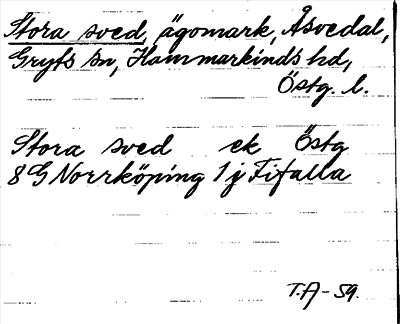 Stora sved, ägomark, Åsvedal,
Gryts sn, Hammarkinds hd,
Östg. l.
Stora sved ek Östg
8 G Norrköping 1 j Fifalla
T.A-59.